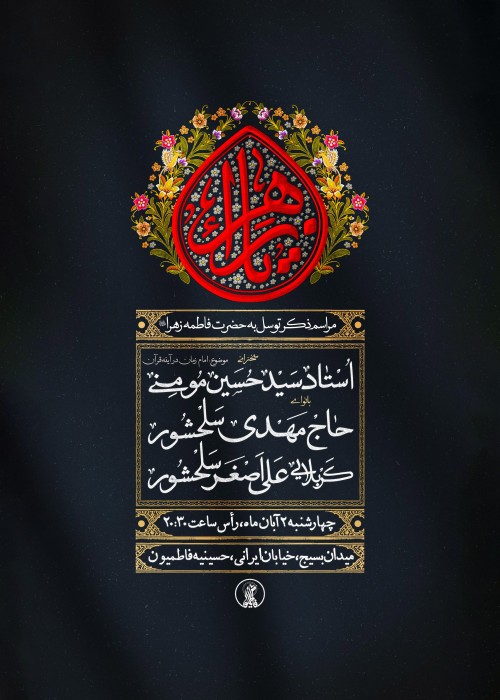 یا زهراء
مراسم ذکر توسل به حضرت فاطمه زهرا
سخنرانی موضوع: امام زمان در آینه قرآن
اُستاد سَید حُسین مومِنی
بانوای
حاج مَهدی سَلحشور
کَربلایی عَلی اَصغَر سَلحشور
چهارشنبه ۲ آبان ماه، رأس ساعت ۲۰:۳۰
میدان بسیج، خیابان ایرانی، حسینیه فاطمیون